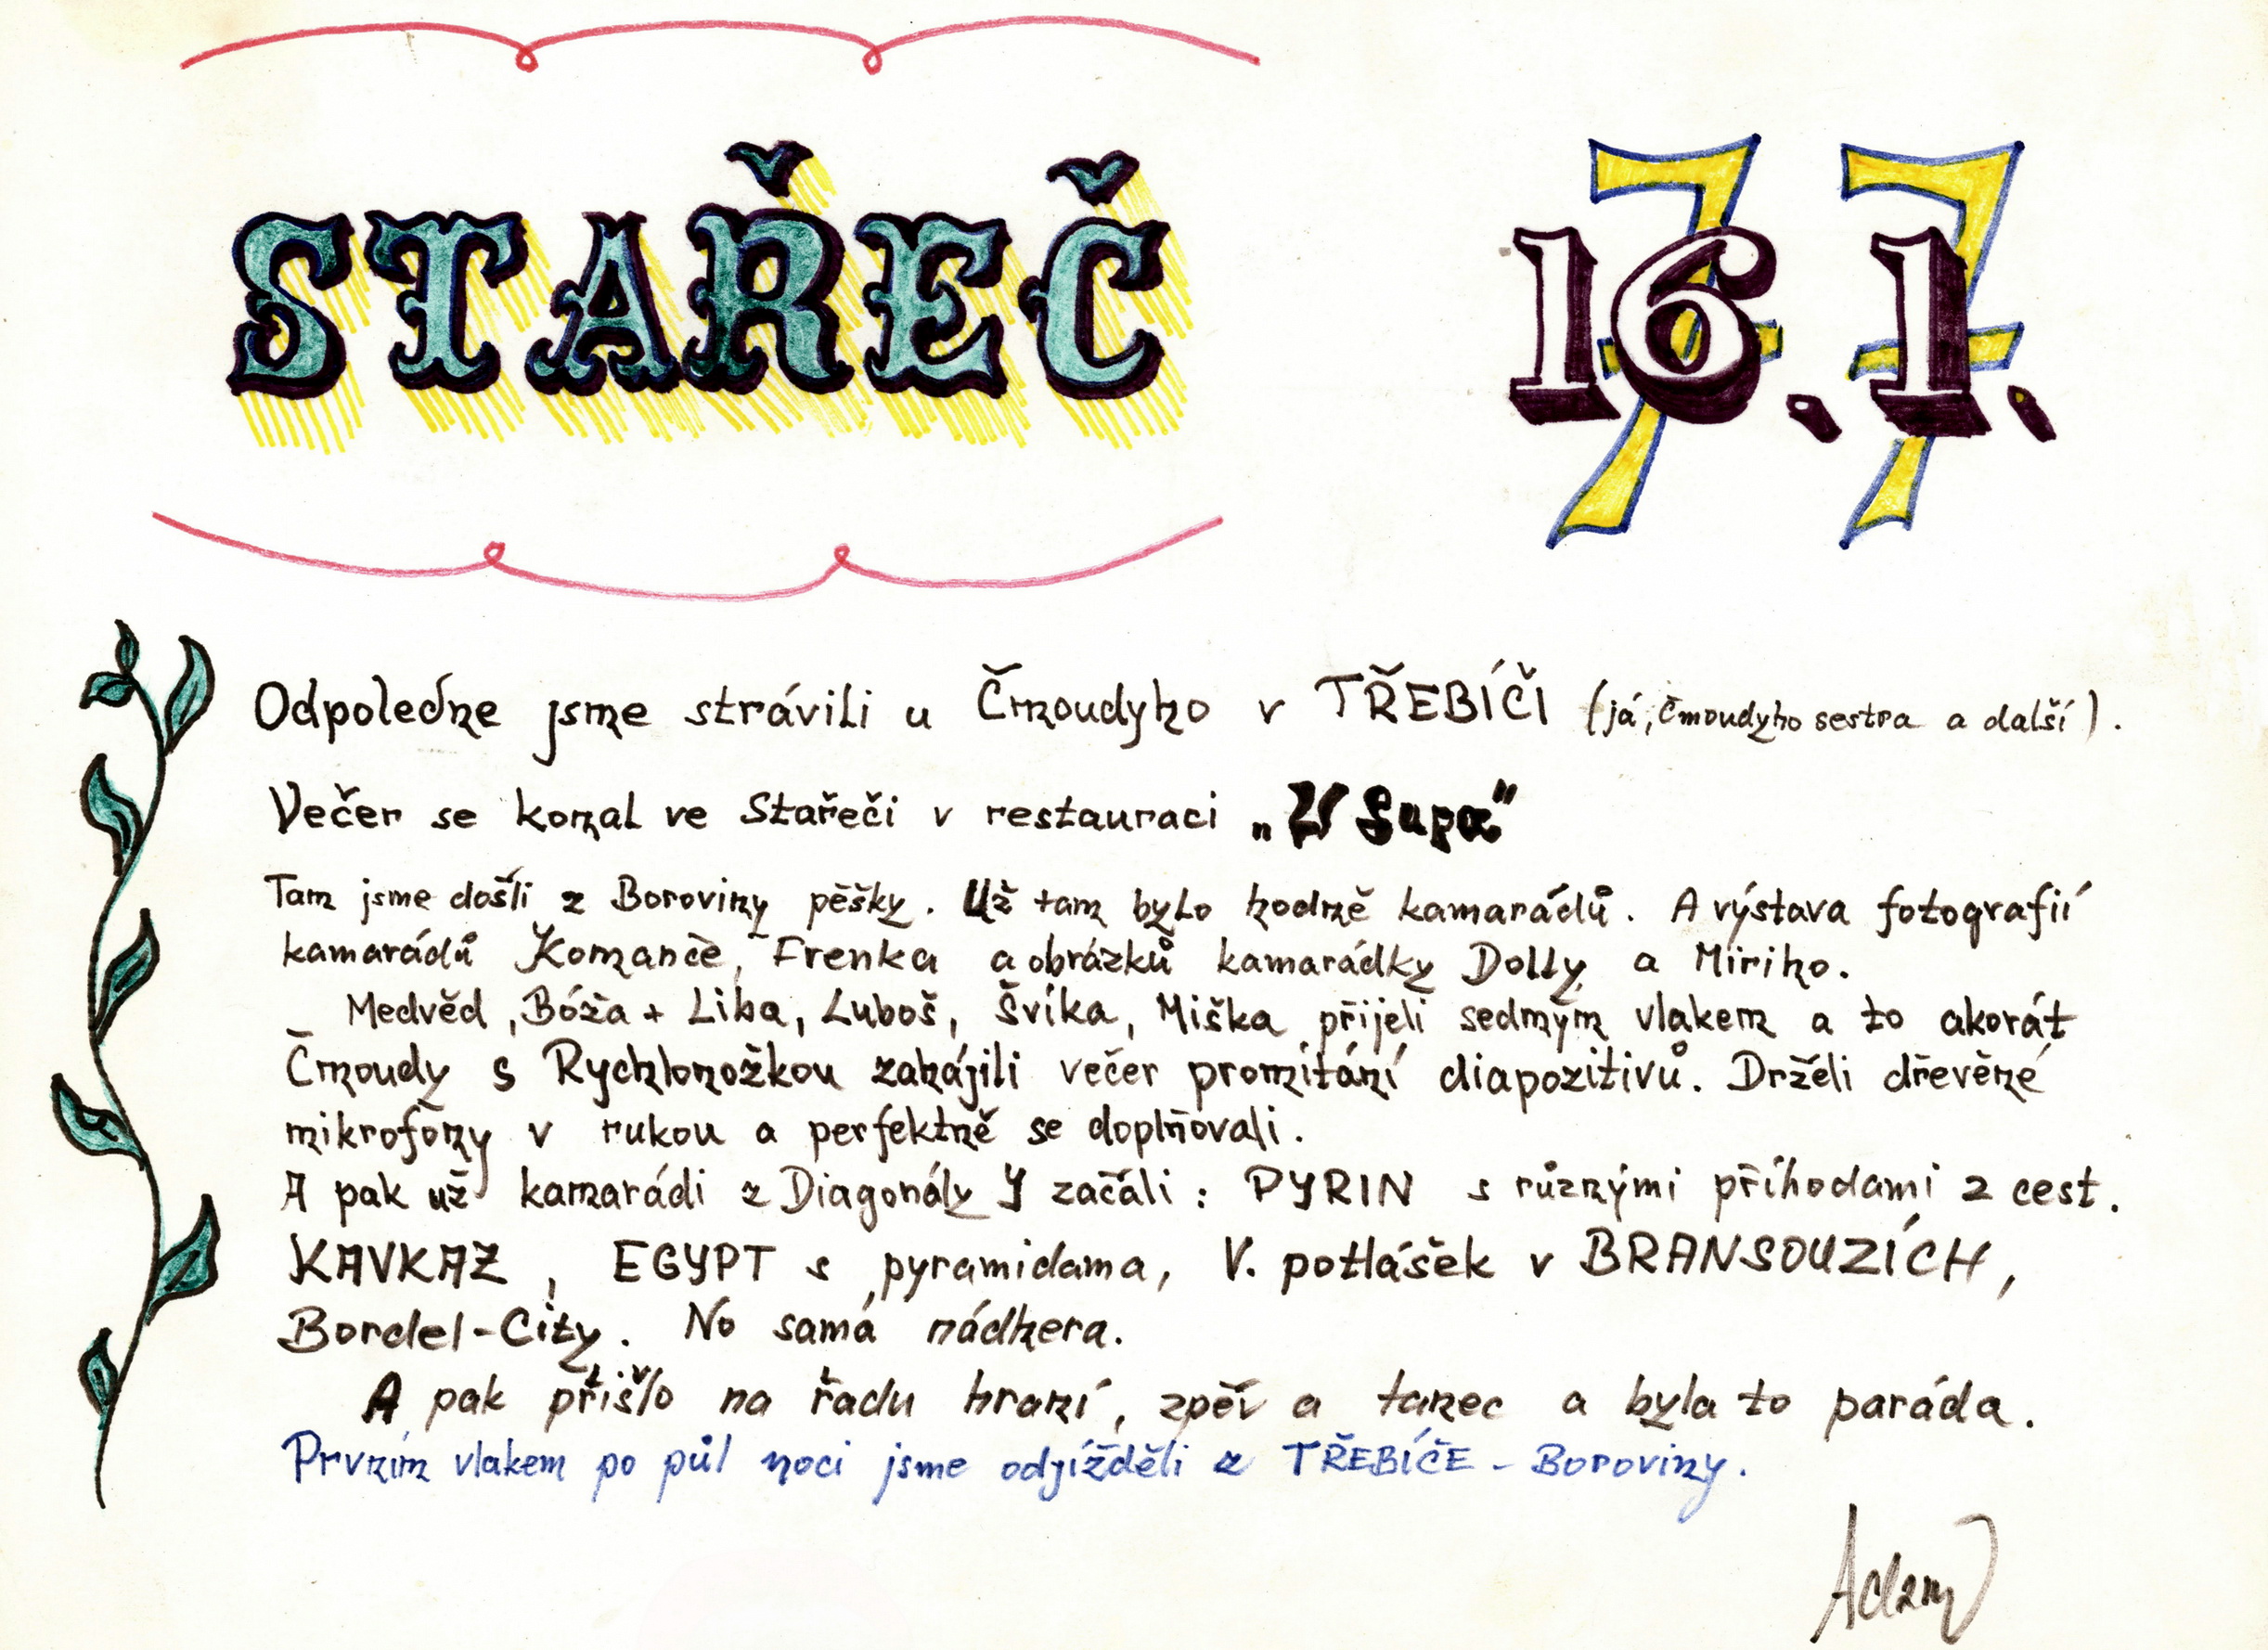 STAŘEČ
16.1.
77
Odpoledne jsme strávili u Čmoudyho v TŘEBÍČI (já, čmoudyho sestra a další).
Večer se konal ve Stařeči v restauraci „U Supa“
Tam jsme došli z Boroviny pěšky. Už tam bylo hodně kamarádů. A výstava fotografií
kamarádů Komanče, Frenka a obrázků kamarádky Dolly a Miriho.
Medvěd, Bóža + Liba, Luboš, Švíka, Miška přijeli sedmým vlakem a to akorát
Čmoudy s Rychlonožkou zahájili večer promítání diapozitivů. Drželi dřevěné
mikrofony v rukou a perfektně se doplňovali.
A pak už kamarádi z Diagonály Y začali: PYRIN s různými příhodami z cest.
KAVKAZ, EGYPT s pyramidama, V. potlášek v BRANSOUZÍCH,
Bordel-City. No samá nádhera.
A pak přišlo na řadu hraní, zpěv a tanec a byla to paráda.
Prvním vlakem po půl noci jsme odjížděli z TŘEBÍČE - Boroviny.
Adam